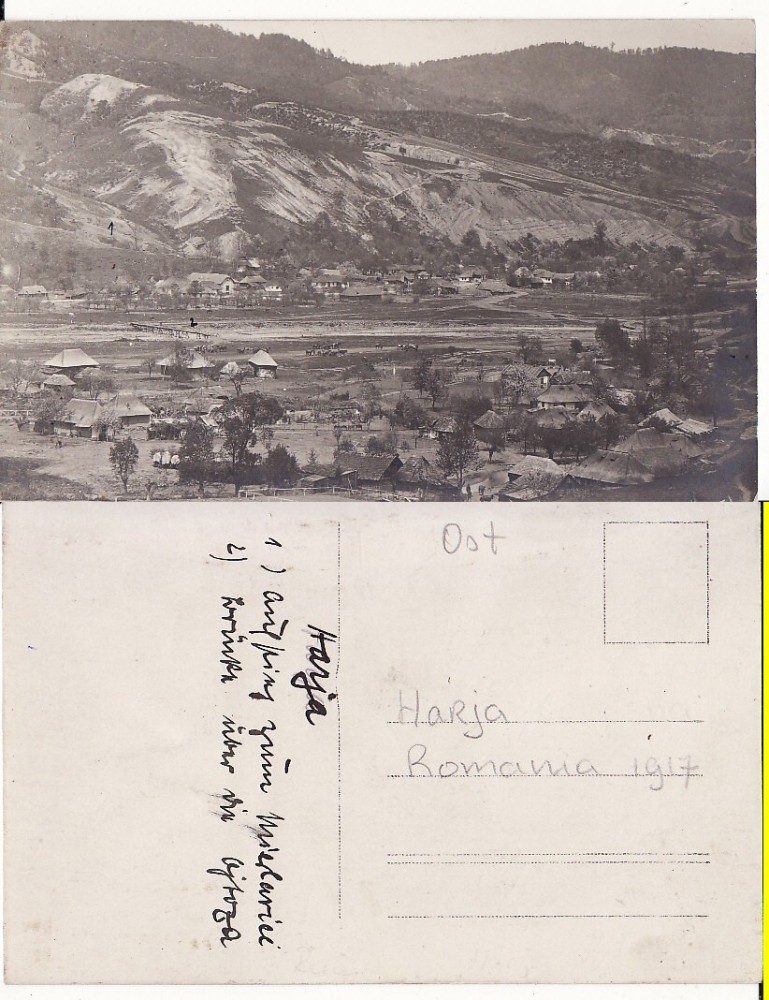 1
2
Ost
Harja
1) aufstieg zum
2) brücke über die Ojtoza
Harja
Romania 1917